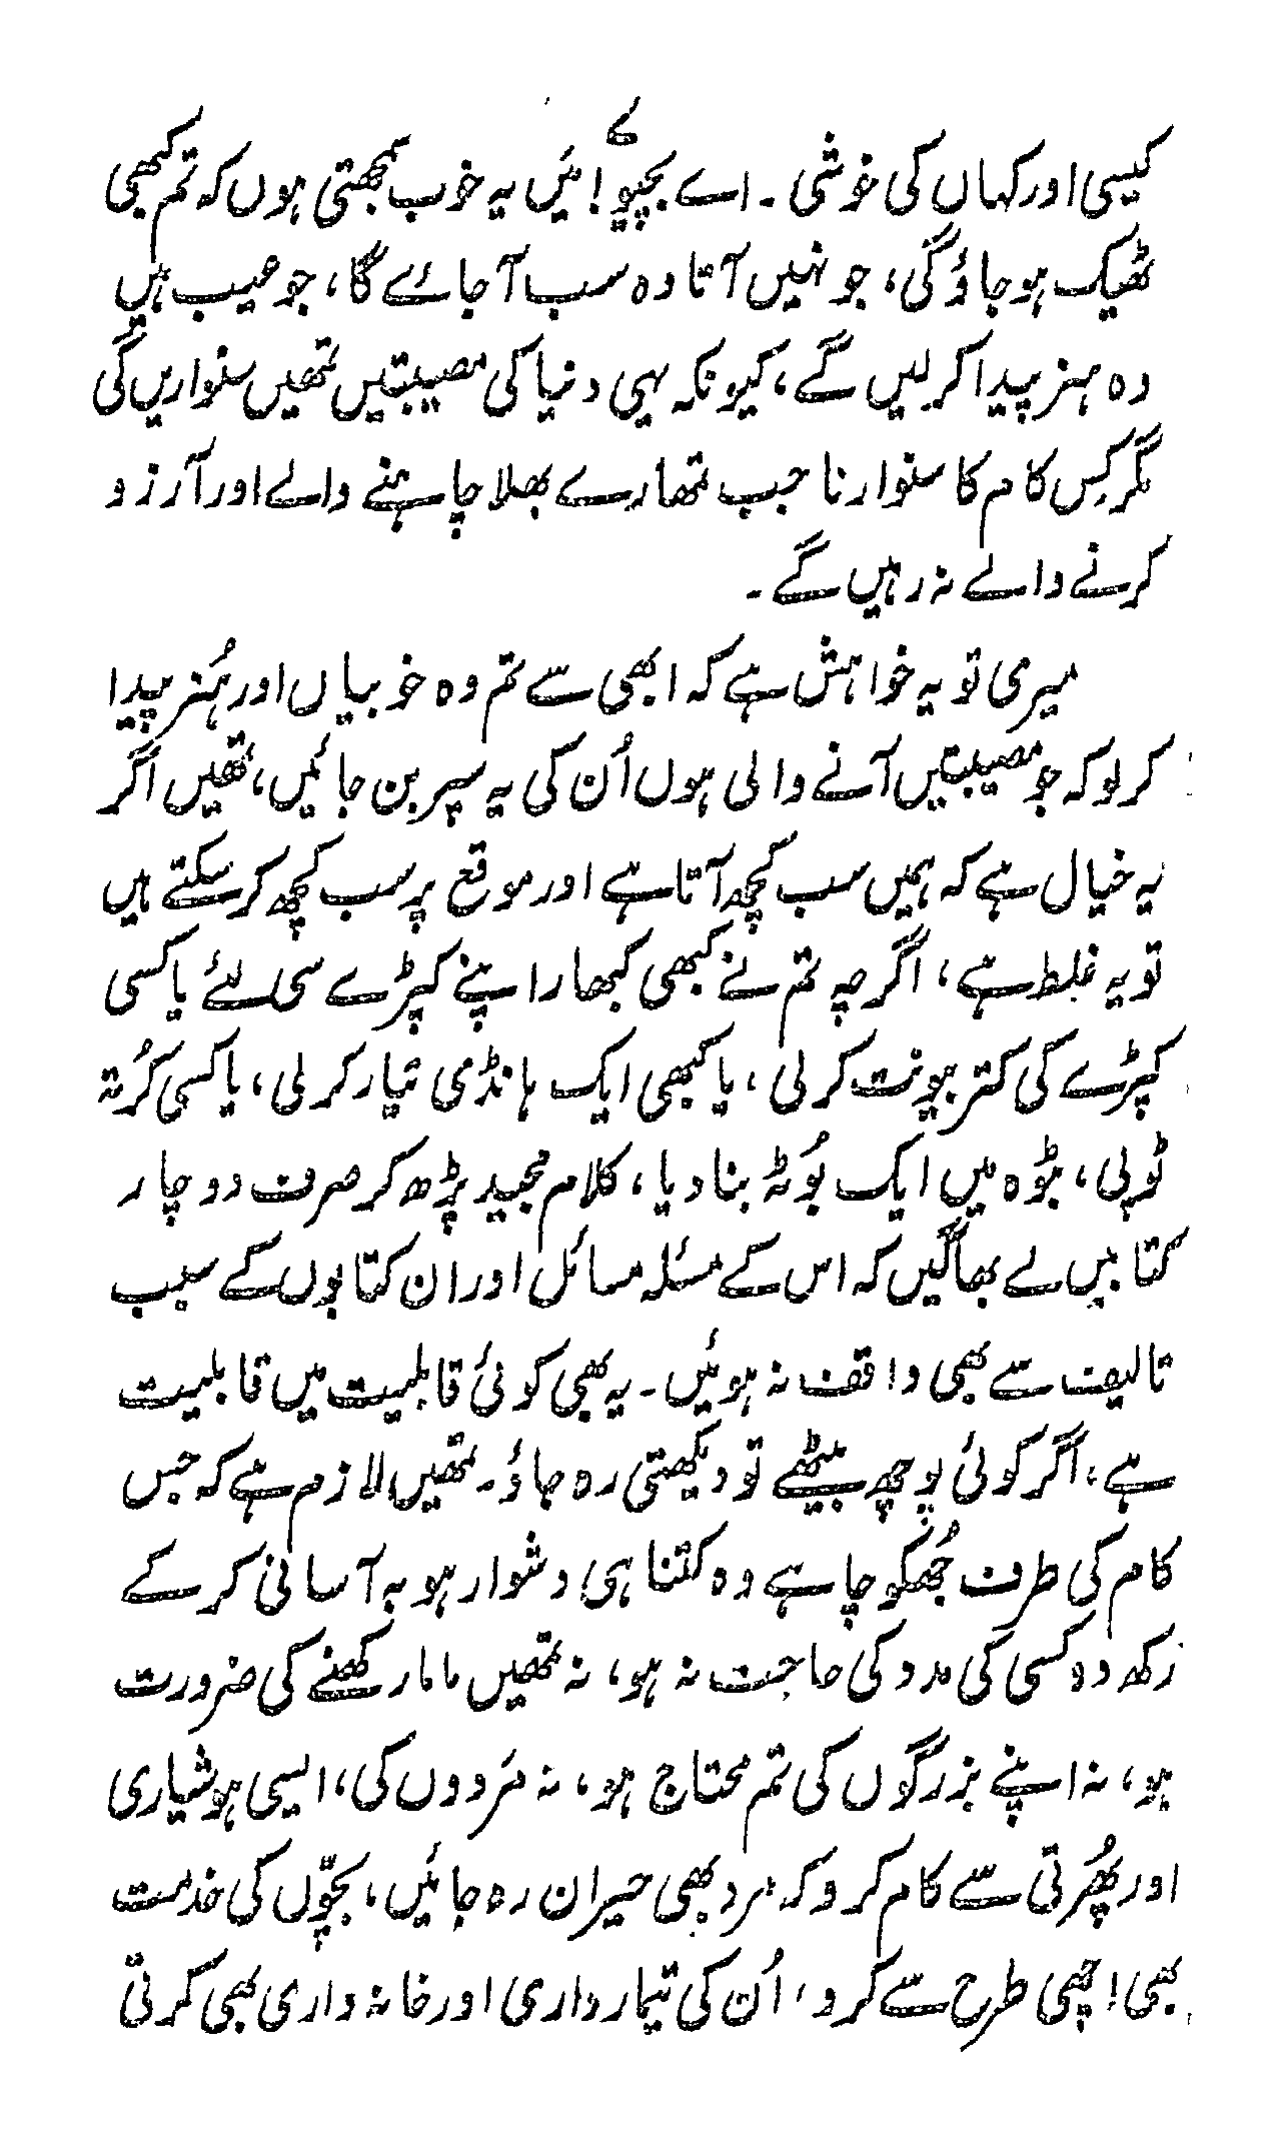 ۷
کیسی اور کہاں کی خوشی ۔ اے بچیو! مَیں یہ خوب سمجھتی ہوں کہ تم کبھی
ٹھیک ہو جاؤ گی، جو نہیں آتا وہ سب آ جائے گا، جو عیب ہیں
وہ ہنر پیدا کر لیں گے، کیونکہ یہی دنیا کی مصیبتیں تمھیں سنواریں گی
مگر کِس کام کا سنوارنا جب تمھارے بھلا چاہنے والے اور آرزو
کرنے والے نہ رہیں گے ۔
میری تو یہ خواہش ہے کہ ابھی سے تم وہ خوبیاں اور ہُنر پیدا
کر لو کہ جو مصیبتیں آنے والی ہوں اُن کی یہ سپر بن جائیں، تمھیں اگر
یہ خیال ہے کہ ہمیں سب کچھ آتا ہے اور موقع پر سب کچھ کر سکتے ہیں
تو یہ غلط ہے، اگرچہ تم نے کبھی کبھار اپنے کپڑے سی لئے یا کسی
کپڑے کی کتر بیونت کر لی، یا کبھی ایک ہانڈی تیار کر لی، یا کسی کُرتہ
ٹوپی، بٹوہ میں ایک بُوٹہ بنا دیا، کلام مجید پڑھ کر صرف دو چار
کتابیں لے بھاگیں کہ اس کے مسئلہ مسائل اور ان کتابوں کے سبب
تالیف سے بھی واقف نہ ہوئیں ۔ یہ بھی کوئی قابلیت میں قابلیت
ہے، اگر کوئی پوچھ بیٹھے تو دیکھتی رہ جاؤ۔ تمھیں لازم ہے کہ جس
کام کی طرف جُھکو چاہے وہ کتنا ہی دشوار ہو بہ آسانی کر کے
رکھ دو کسی کی مدد کی حاجت نہ ہو، نہ تمھیں ماما رکھنے کی ضرورت
ہو، نہ اپنے بزرگوں کی تم محتاج ہو، نہ مَردوں کی، ایسی ہوشیاری
اور پھُرتی سے کام کرو کہ مرد بھی حیران رہ جائیں، بچّوں کی خدمت
بھی اچھی طرح سے کرو، اُن کی تیمارداری اور خانہ داری بھی کرتی